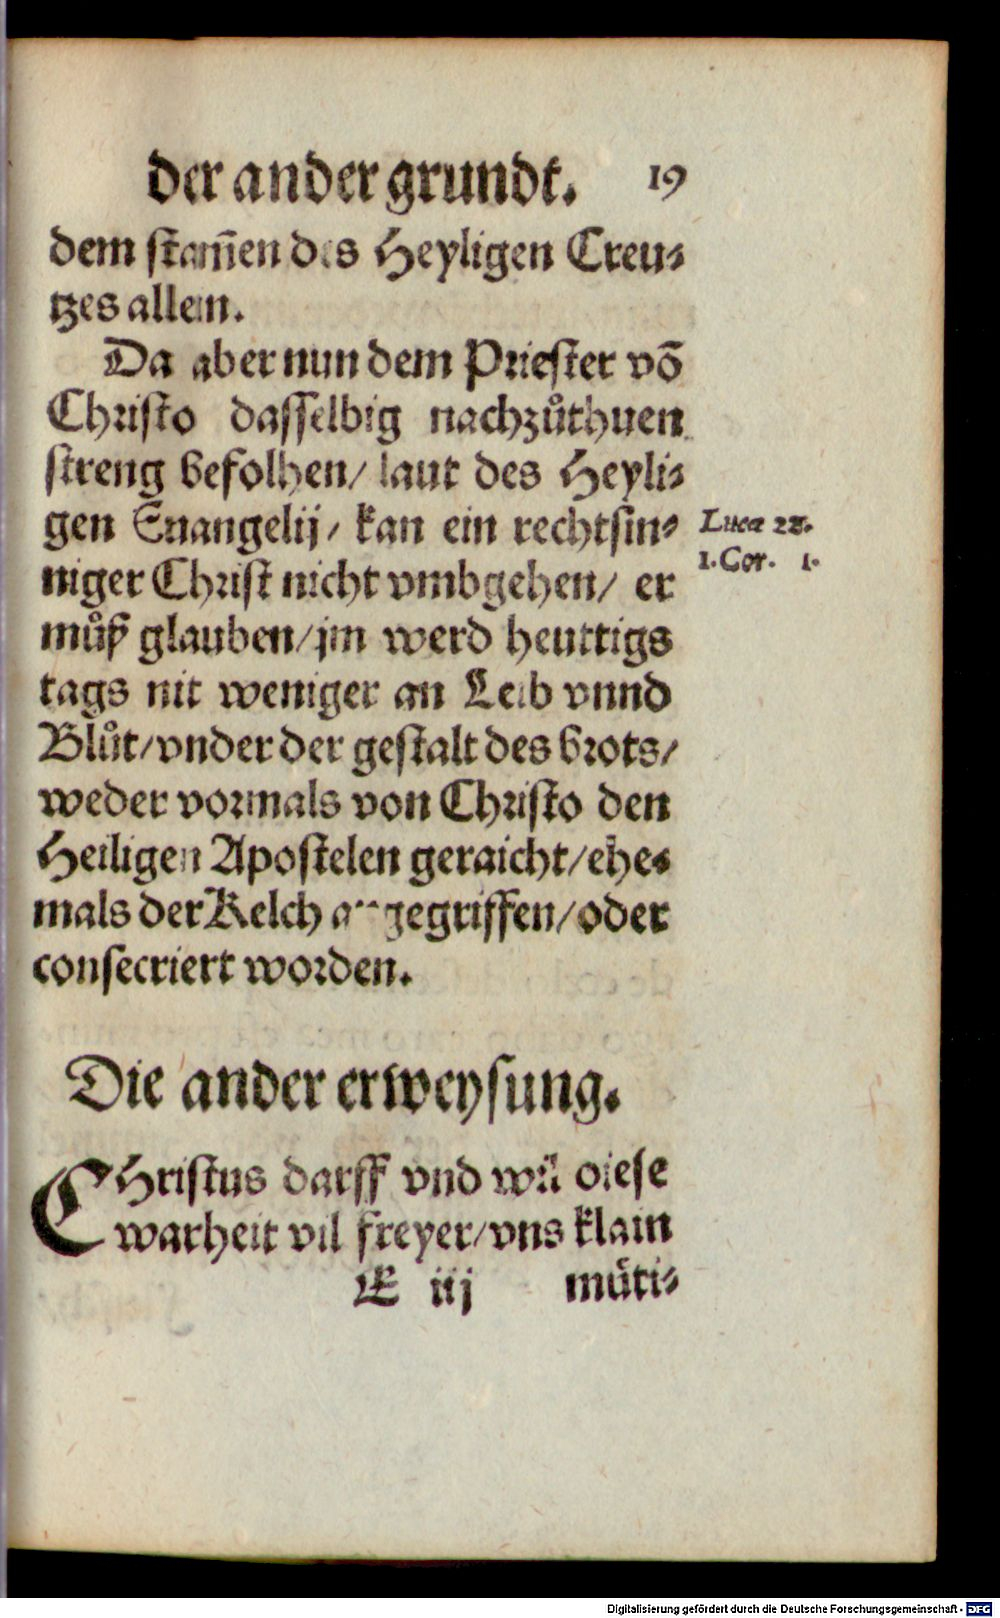 der ander grundt. 19
dem stam̄en des Heyligen Creu⸗
tzes allein.
Da aber nun dem Priester võ
Christo dasselbig nachzůthuen
streng befolhen/ laut des Heyli⸗
gen Euangelij/ kan ein rechtsin⸗
Luca 22.
niger Christ nicht vmbgehen/ er
1. Cor. 1.
můß glauben/ jm werd heuttigs
tags nit weniger an Leib vnnd
Blůt/ vnder der gestalt des brots/
weder vormals von Christo den
Heiligen Apostelen geraicht/ ehe⸗
mals der Kelch angegriffen/ oder
consecriert worden.
Die ander erweysung.
CHristus darff vnd wil diese
warheit vil freyer/ vns klain
E iij müti⸗
Digitalisierung gefördert durch die Deutsche Forschungsgemeinschaft - DFG